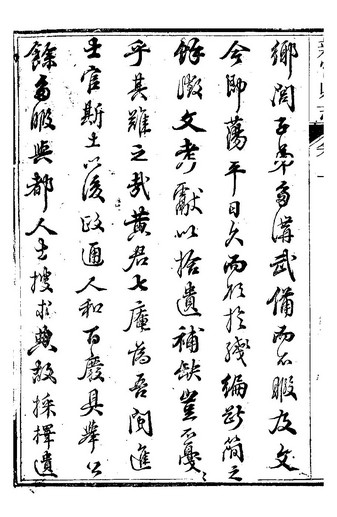 鄉閭子弟多講武備而不暇及文
今即蕩平日久而欲於殘編斷簡之
餘徵文考獻以拾遺補缺豈不戛〻
乎其難之哉黃君七庵為吾閩進
士官斯土以後政通人和百廢具舉公
餘多暇與都人士搜求典故採擇遺